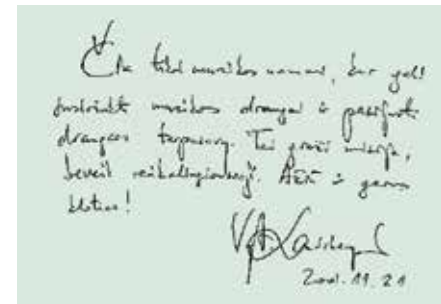 Čia tikri muzikos namai, kur gali
susirinkti muzikos draugai ir
draugauti tarpusavy. Tai graži misija,
beveik Ačiū ir geros
kloties!
V. Landsbergis
2001.11.21